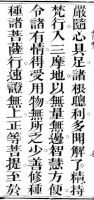 嚴隨心具足諸根聰利多聞解了總持
梵行入三摩地以無量無邊智慧方便
令諸有情得受用物無所乏少善修種
種諸菩薩行速證無上正等菩提至於